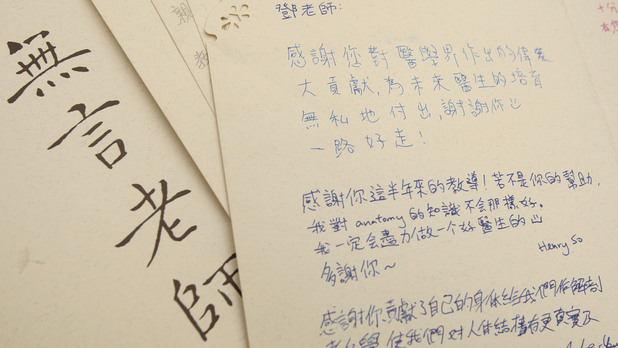 無言老師
鄧老師:
感謝您對醫學界作出的偉大
大貢獻,為未來醫生的培育
無私地付出,謝謝你
一路好走!
感謝你這半年來的教導!若不是你的幫助,
我對anatomy的知識不会那樣好。
我一定会盡力做一个好醫生的
Henry So
多謝你~
感謝你貢獻了自己的身体給我們作解剖
使我們對人体結構有更真實及